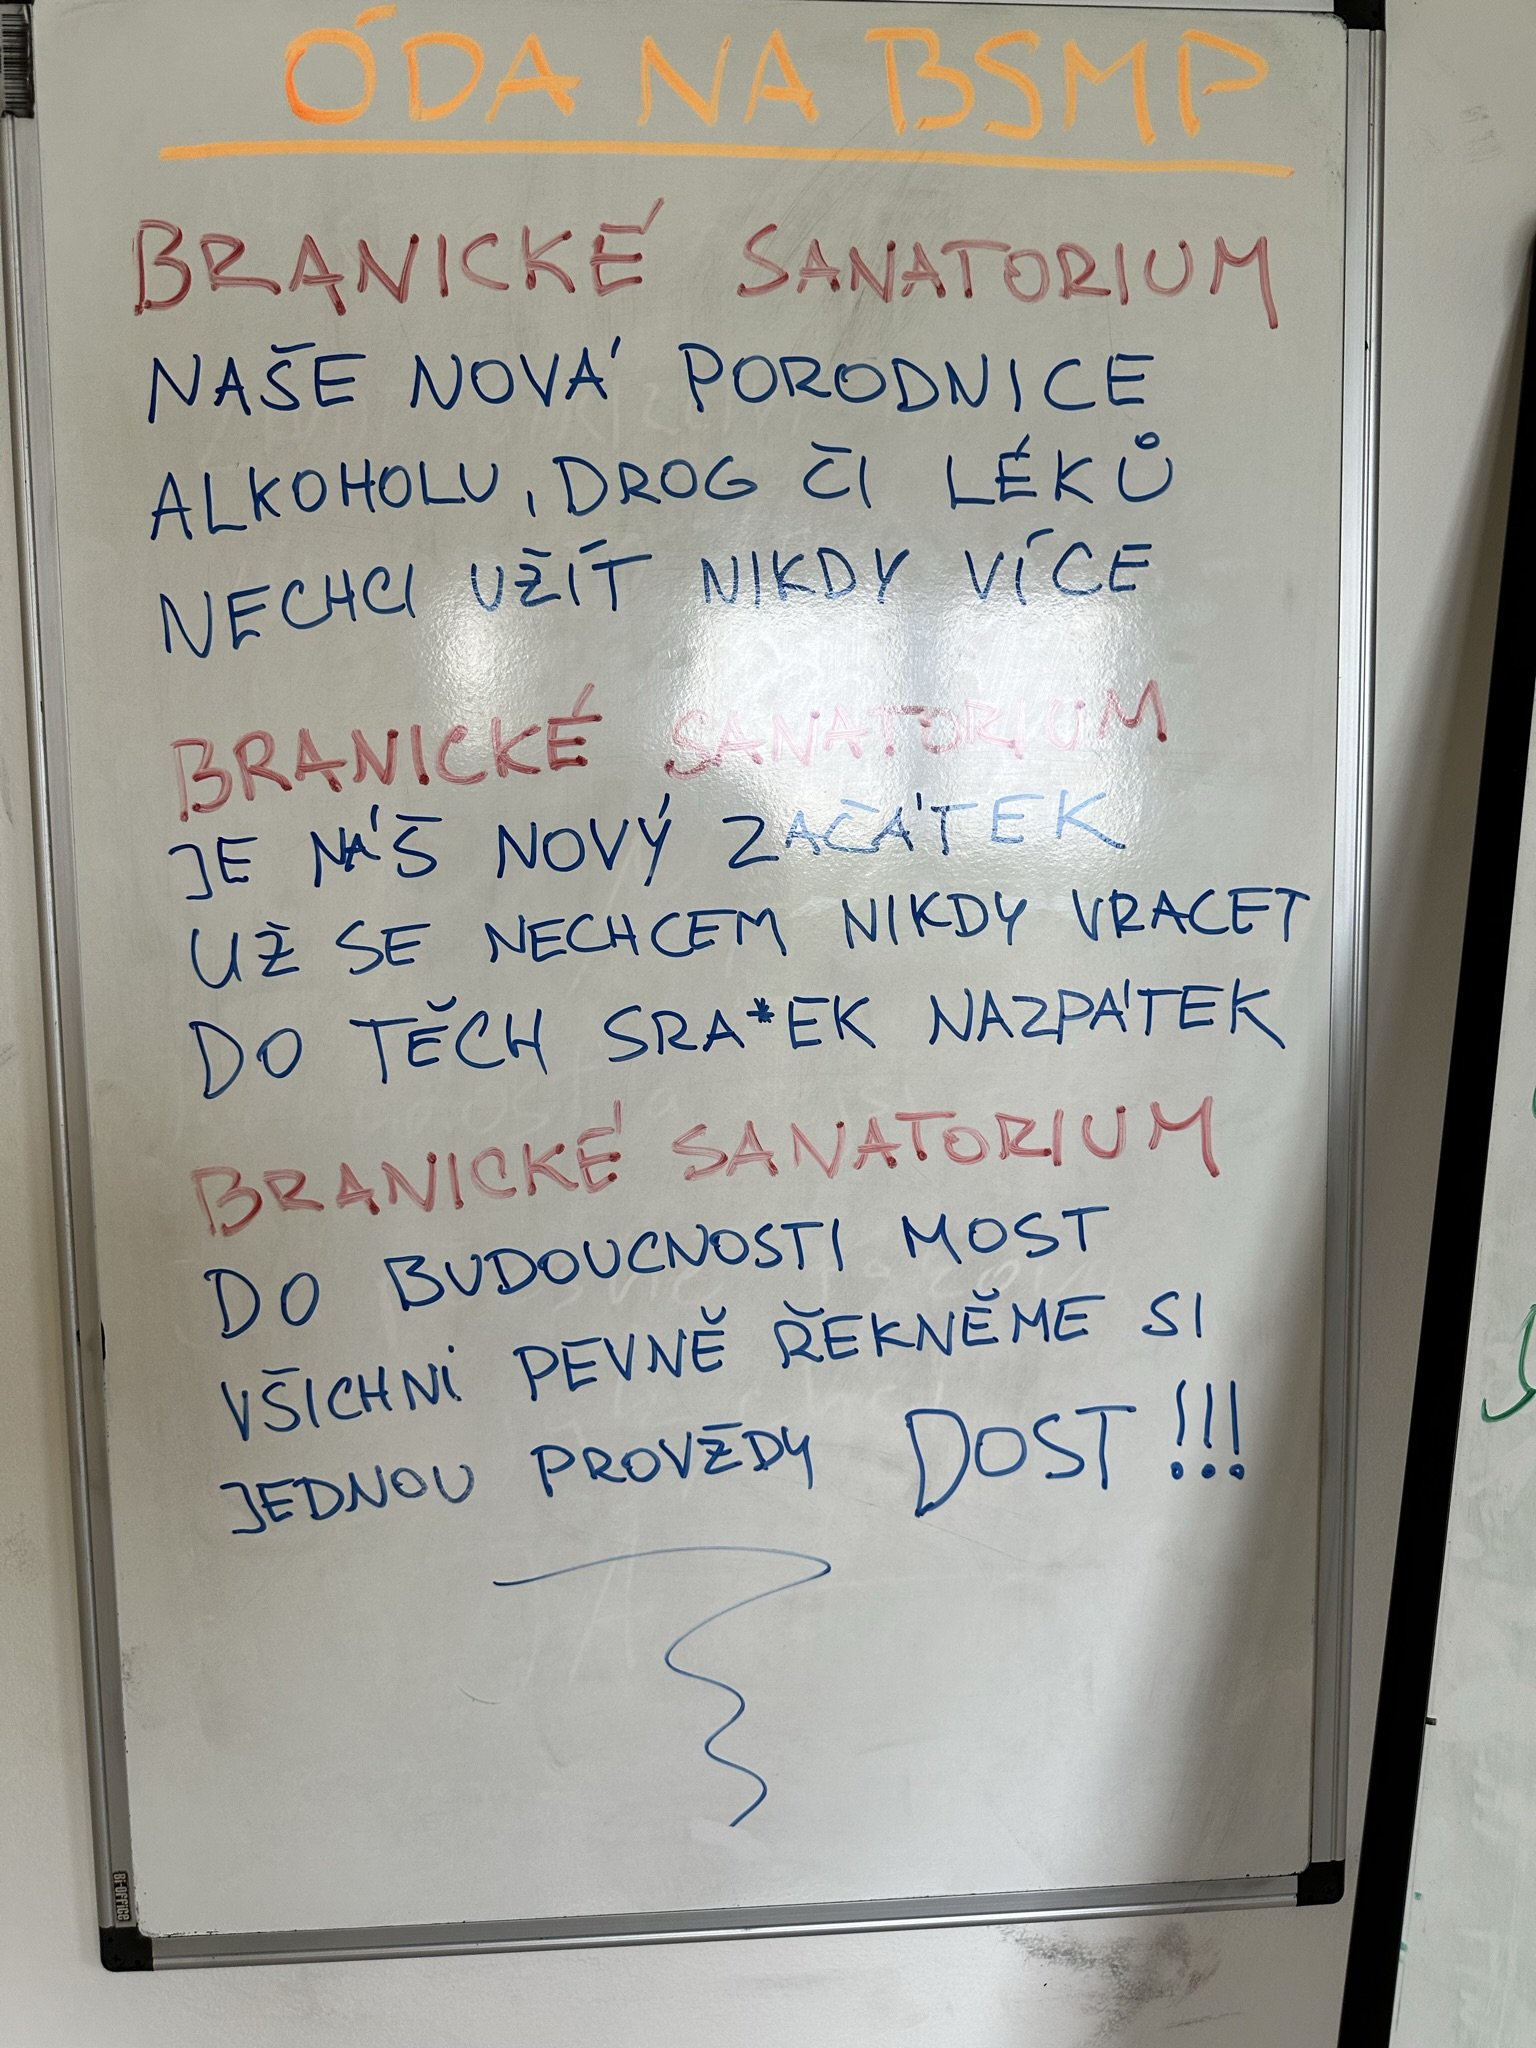 ÓDA NA BSMP
BRANICKÉ SANATORIUM
NAŠE NOVÁ PORODNICE
ALKOHOLU, DROG ČI LÉKŮ
NECHCI UŽÍT NIKDY VÍCE
BRANICKÉ SANATORIUM
JE NÁŠ NOVÝ ZAČÁTEK
UŽ SE NECHCEM NIKDY VRACET
DO TĚCH SRA*EK NAZPÁTEK
BRANICKÉ SANATORIUM
DO BUDOUCNOSTI MOST
VŠICHNI PEVNĚ ŘEKNĚME SI
JEDNOU PROVŽDY DOST!!!
Bi-OFFICE